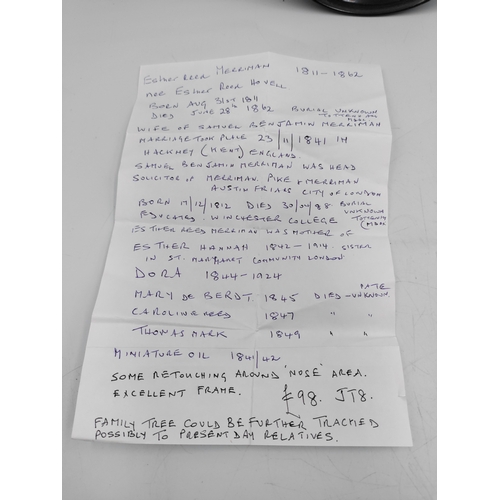 Esther Reed Merriman 1811-1862
nee Esther Reed Hovell
BORN AUG 31st 1811
DIED JUNE 28th 1862 BURIAL UNKNOWN
WIFE OF SAMUEL BENJAMIN MERRIMAN
MARRIAGE TOOK PLACE 23/11/1841 IN
HACKNEY (KENT) ENGLAND.
SAMUEL BENJAMIN MERRIMAN WAS HEAD
SOLICITOR OF MERRIMAN. PIKE & MERRIMAN
AUSTIN FRIARS CITY OF LONDON
BORN 17/12/1812 DIED 30/04/88 BURIAL
UNKNOWN
EDUCATED WINCHESTER COLLEGE
ESTHER REED MERRIMAN WAS MOTHER OF
ESTHER HANNAH 1842-1914. SISTER
IN ST. MARGARET COMMUNITY LONDON.
DORA 1844-1924
MARY DE BERDT. 1845 DIED - DATE UNKNOWN.
CAROLINE REED 1847 " "
THOMAS MARK 1849 " "
MINIATURE OIL 1841/42
SOME RETOUCHING AROUND 'NOSE' AREA.
EXCELLENT FRAME. £98. JT8.
FAMILY TREE COULD BE FURTHER TRACKED
POSSIBLY TO PRESENT DAY RELATIVES.